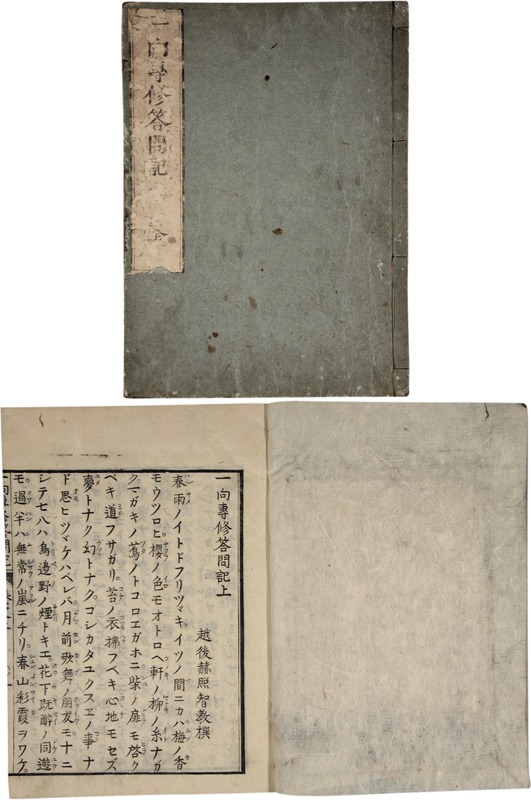 一向専修答問記 全
一向專修答問記上
越後赫照智教撰
春雨ノイトドフリツヾキイツノ間ニカハ梅ノ香
モウツロヒ櫻ノ色モオトロヘ軒ノ柳ノ糸ナガ
クマガキノ蔦ノトコロエガホニ柴ノ扉モ啓ク
ベキ道フサガリ苔ノ衣拂フベキ心地モセズ
夢トナク幻トナクコシカタユクスヱノ事ナ
ド思ヒツヾケハベレバ月前歌舞ノ朋友モナニ
シテ七八ハ鳥邊野ノ煙トキエ花下既醉ノ同遊
モ過半ハ無常ノ嵐ニチリ春山彩霞ヲワケ